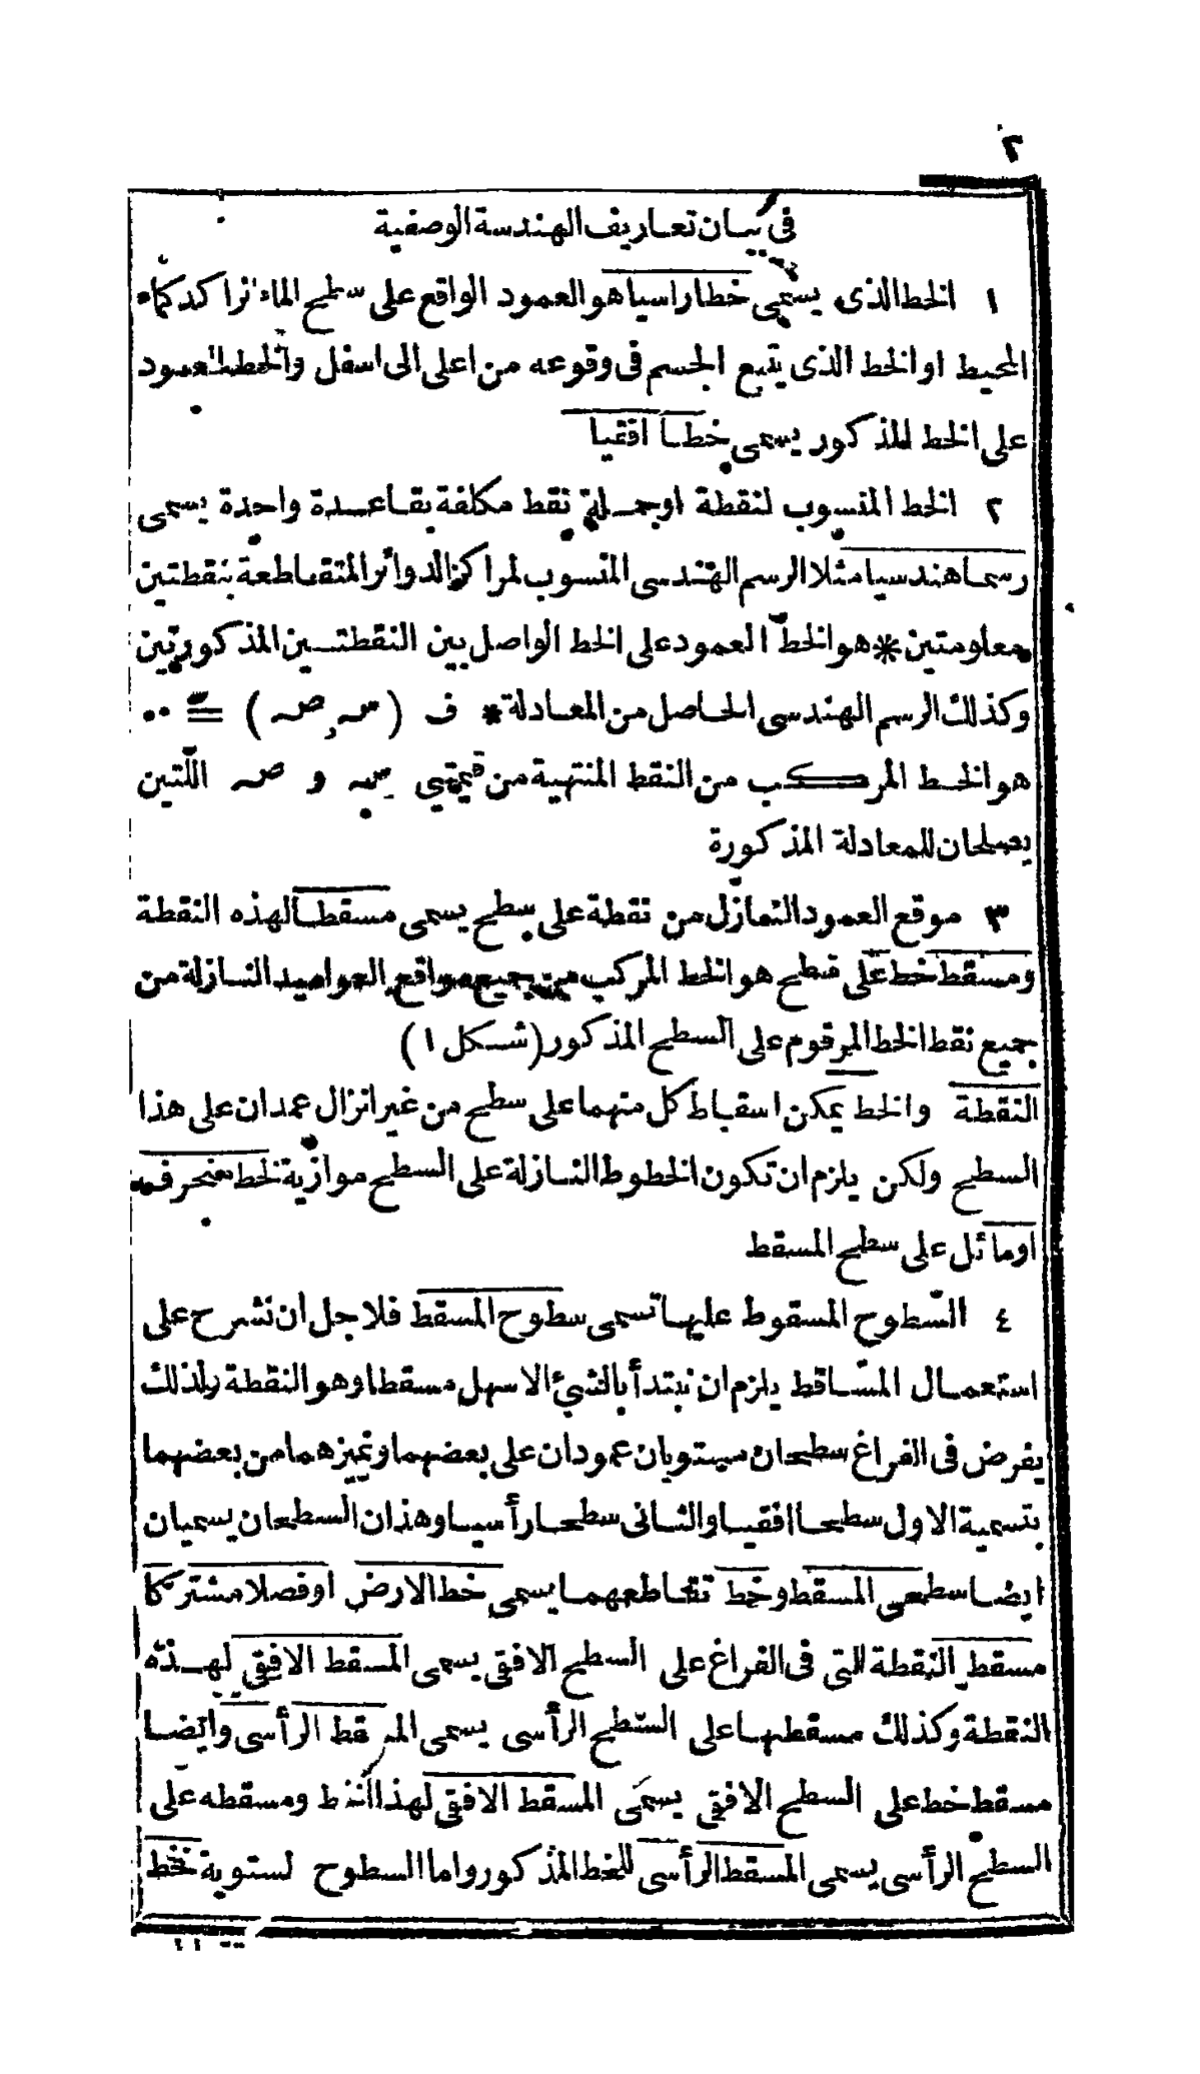 ٢
فى بيان تعاريف الهندسة الوصفية
١ الخط الذى يسمى خطا راسيا هو العمود الواقع على سطح الماء الراكد كماء
المحيط او الخط الذى يتبع الجسم فى وقوعه من اعلى الى اسفل والخط العمود
على الخط المذكور يسمى خطا افقيا
٢ الخط المنسوب لنقطة او جملة نقط مكلفة بقاعدة واحدة يسمى
رسما هندسيا مثلا الرسم الهندسى المنسوب لمراكز الدوائر المتقاطعة بنقطتين
معلومتين * هو الخط العمود على الخط الواصل بين النقطتين المذكورتين
وكذلك الرسم الهندسى الحاصل من المعادلة * ف (سـ , صـ) = ٠٠
هو الخط المركب من النقط المنتهية من قيمتي سـ و صـ اللتين
يصلحان للمعادلة المذكورة
٣ موقع العمود النازل من نقطة على سطح يسمى مسقطا لهذه النقطة
ومسقط خط على سطح هو الخط المركب من جميع مواقع العواميد النازلة من
جميع نقط الخط المرقوم على السطح المذكور (شكل ١)
النقطة والخط يمكن اسقاط كل منهما على سطح من غير انزال عمدان على هذا
السطح ولكن يلزم ان تكون الخطوط النازلة على السطح موازية لخط منحرف
او مائل على سطح المسقط
٤ السطوح المسقوط عليها تسمى سطوح المسقط فلاجل ان نشرح على
استعمال المساقط يلزم ان نبتدأ بالشئ الاسهل مسقطا وهو النقطة ولذلك
يفرض فى الفراغ سطحان مستويان عمودان على بعضهما وتميزهما من بعضهما
بتسمية الاول سطحا افقيا والثانى سطحا رأسيا وهذان السطحان يسميان
ايضا سطحى المسقط وخط تقاطعهما يسمى خط الارض او فصلا مشتركا
مسقط النقطة التى فى الفراغ على السطح الافقى يسمى المسقط الافقى لهذه
النقطة وكذلك مسقطها على السطح الرأسى يسمى المسقط الرأسى وايضا
مسقط خط على السطح الافقى يسمى المسقط الافقى لهذا الخط ومسقطه على
السطح الرأسى يسمى المسقط الرأسى للخط المذكور واما السطوح لستوية خط